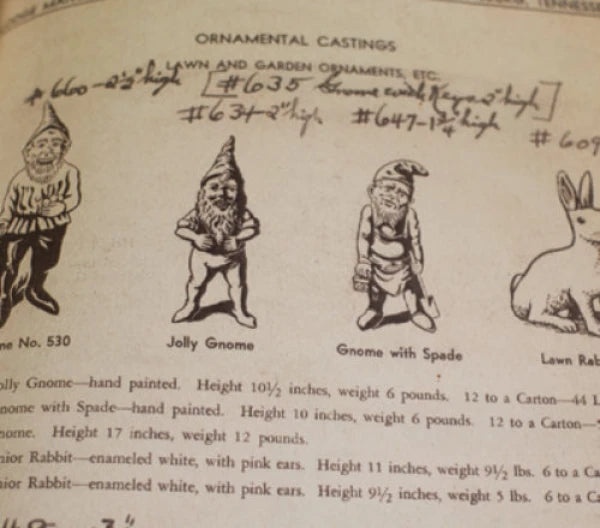 TENNESSEE
ORNAMENTAL CASTINGS
LAWN AND GARDEN ORNAMENTS, ETC.
#660-2½" high [#635 Gnome with Keys 2" high]
#634-2" high #647-1¾" high
#609
No. 530 Jolly Gnome Gnome with Spade Lawn Rab
olly Gnome—hand painted. Height 10½ inches, weight 6 pounds. 12 to a Carton—44 L
nome with Spade—hand painted. Height 10 inches, weight 6 pounds. 12 to a Carton—
nome. Height 17 inches, weight 12 pounds.
nior Rabbit—enameled white, with pink ears. Height 11 inches, weight 9½ lbs. 6 to a Ca
nior Rabbit—enameled white, with pink ears. Height 9½ inches, weight 5 lbs. 6 to a Ca